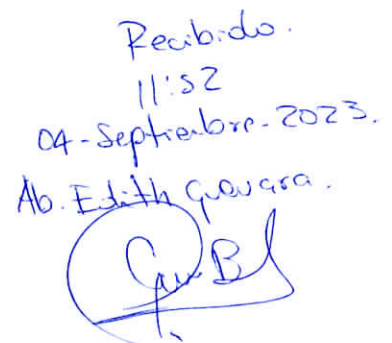 Recibido.
11:52
04-Septiembre-2023.
Ab. Edith Guevara.